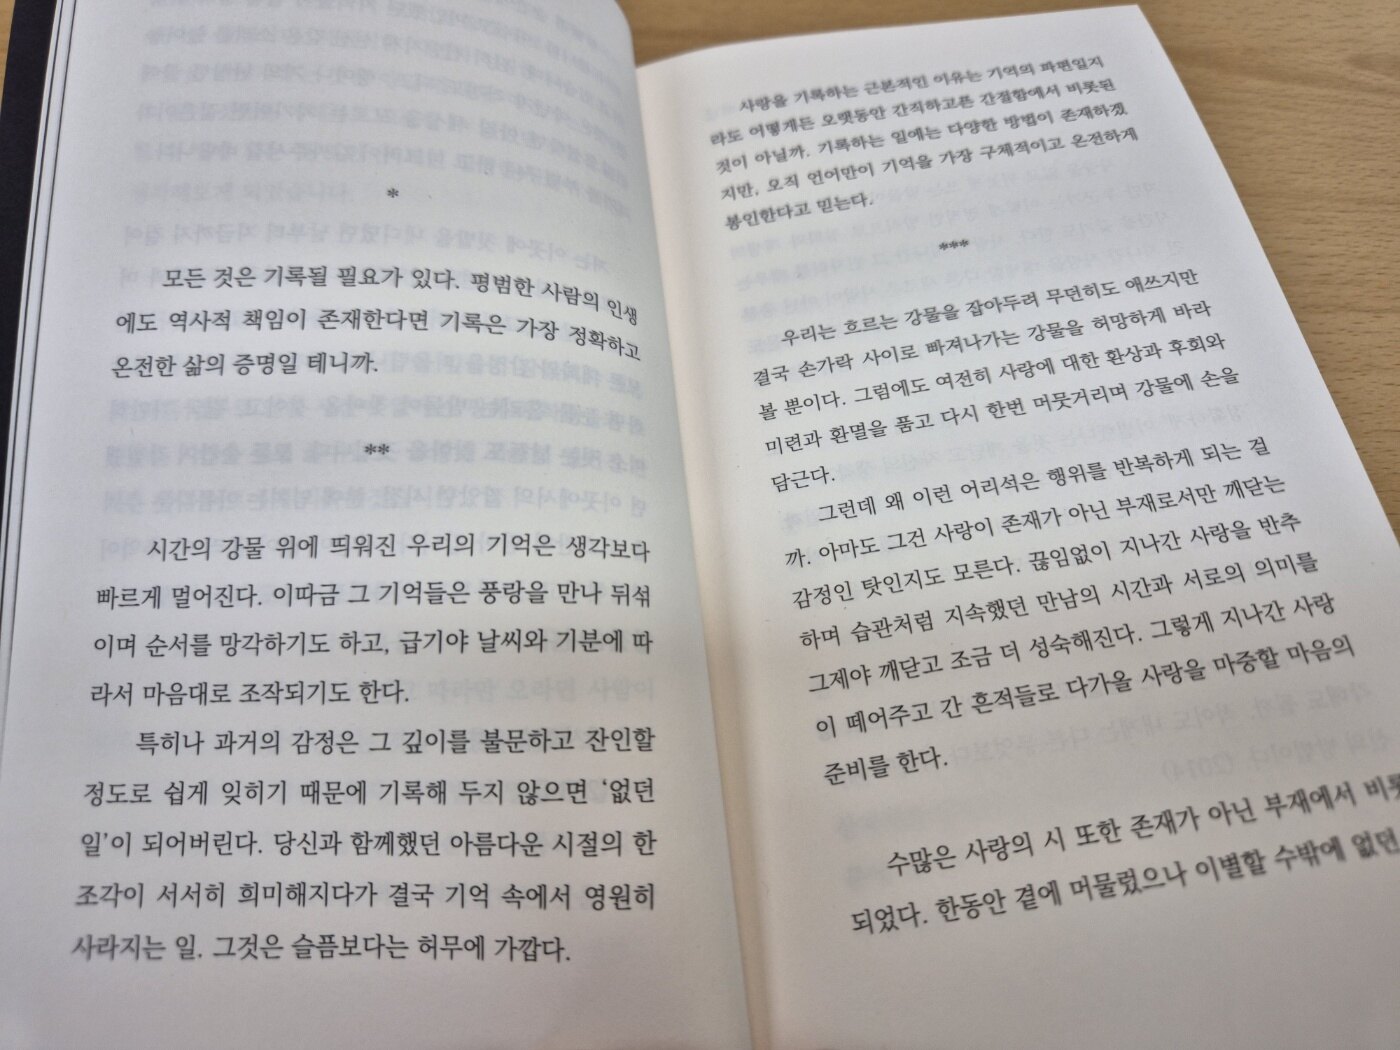 *
모든 것은 기록될 필요가 있다. 평범한 사람의 인생
에도 역사적 책임이 존재한다면 기록은 가장 정확하고
온전한 삶의 증명일 테니까.
**
시간의 강물 위에 띄워진 우리의 기억은 생각보다
빠르게 멀어진다. 이따금 그 기억들은 풍랑을 만나 뒤섞
이며 순서를 망각하기도 하고, 급기야 날씨와 기분에 따
라서 마음대로 조작되기도 한다.
특히나 과거의 감정은 그 깊이를 불문하고 잔인할
정도로 쉽게 잊히기 때문에 기록해 두지 않으면 '없던
일'이 되어버린다. 당신과 함께했던 아름다운 시절의 한
조각이 서서히 희미해지다가 결국 기억 속에서 영원히
사라지는 일. 그것은 슬픔보다는 허무에 가깝다.
사랑을 기록하는 근본적인 이유는 기억의 파편일지
라도 어떻게든 오랫동안 간직하고픈 간절함에서 비롯된
것이 아닐까. 기록하는 일에는 다양한 방법이 존재하겠
지만, 오직 언어만이 기억을 가장 구체적이고 온전하게
봉인한다고 믿는다.
***
우리는 흐르는 강물을 잡아두려 무던히도 애쓰지만
결국 손가락 사이로 빠져나가는 강물을 허망하게 바라
볼 뿐이다. 그럼에도 여전히 사랑에 대한 환상과 후회와
미련과 환멸을 품고 다시 한번 머뭇거리며 강물에 손을
담근다.
그런데 왜 이런 어리석은 행위를 반복하게 되는 걸
까. 아마도 그건 사랑이 존재가 아닌 부재로서만 깨닫는
감정인 탓인지도 모른다. 끊임없이 지나간 사랑을 반추
하며 습관처럼 지속했던 만남의 시간과 서로의 의미를
그제야 깨닫고 조금 더 성숙해진다. 그렇게 지나간 사랑
이 떼어주고 간 흔적들로 다가올 사랑을 마중할 마음의
준비를 한다.
수많은 사랑의 시 또한 존재가 아닌 부재에서 비롯
되었다. 한동안 곁에 머물렀으나 이별할 수밖에 없던